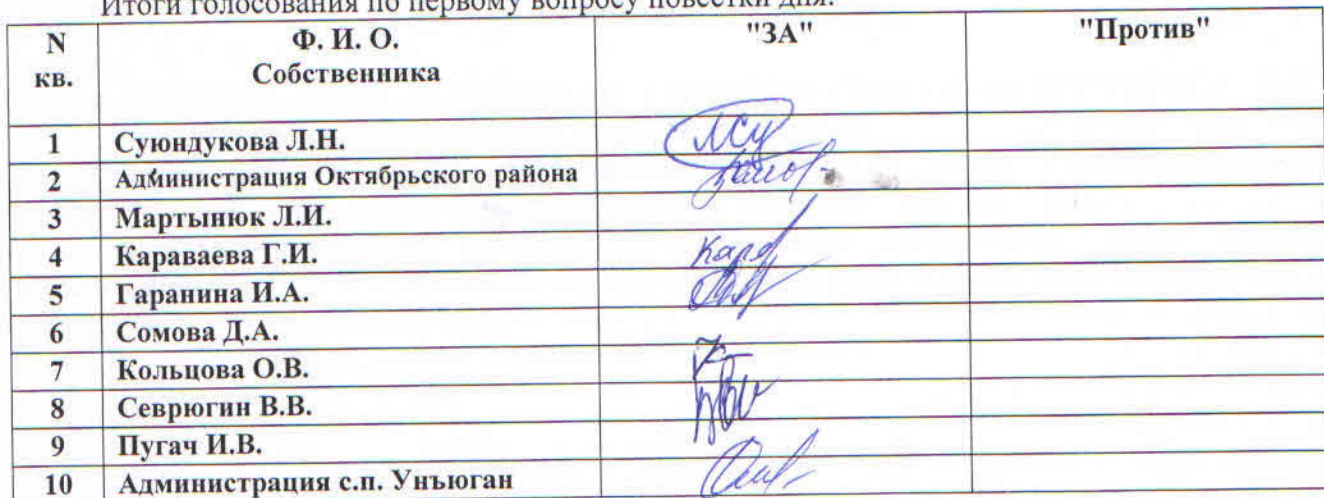 Итоги голосования по первому вопросу повестки дня:
N кв. Ф. И. О. Собственника "ЗА" "Против"
1 Суюндукова Л.Н.
2 Администрация Октябрьского района
3 Мартынюк Л.И.
4 Караваева Г.И. Кара
5 Гаранина И.А.
6 Сомова Д.А.
7 Кольцова О.В.
8 Севрюгин В.В.
9 Пугач И.В.
10 Администрация с.п. Унъюган